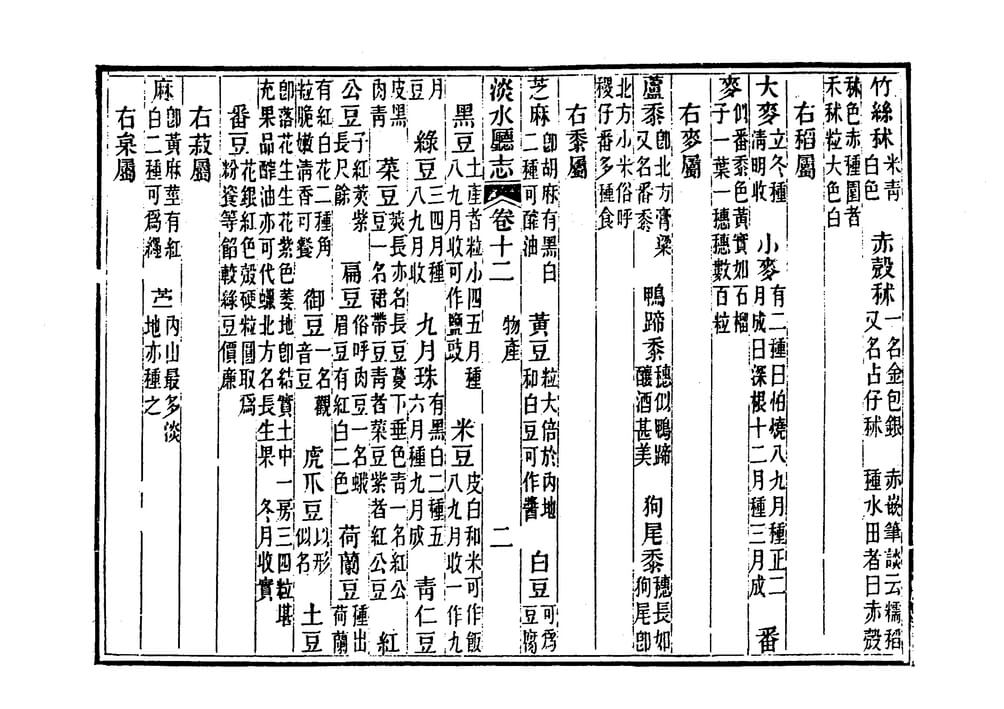 竹絲秫米青白色　赤殼秫一名金包銀又名占仔秫　赤嵌筆談云糯稻種水田者曰赤殼
秫色赤種園者禾秫粒大色白
右稻屬
大麥立冬種清明收　小麥有二種曰怕燒八九月種正二月成曰深根十二月種三月成　番
麥似番黍色黃實如石榴子一葉一穗穗數百粒
右麥屬
蘆黍卽北方膏粱又名番黍　鴨蹄黍穗似鴨蹄釀酒甚美　狗尾黍穗長如狗尾卽
北方小米俗呼稷仔番多種食
右黍屬
芝麻卽胡麻有黑白二種可醡油　黃豆粒大倍於內地和白豆可作醬　白豆可爲豆腐
淡水廳志　卷十二　物產　二
黑豆土產者粒小四五月種八九月收可作鹽豉　米豆皮白和米可作飯八九月收一作九
月豆　綠豆三四月種八九月收　九月珠有黑白二種五六月種九月成　青仁豆
皮黑肉青　菜豆莢長亦名長豆蔓下垂色青一名紅公豆一名裙帶豆青者菜豆紫者紅公豆　紅
公豆子紅莢紫長尺餘　扁豆俗呼肉豆一名蛾眉豆有紅白二色　荷蘭豆種出荷蘭
有紅白花二種角粒脆嫩清香可餐　御豆一名觀音豆　虎爪豆以形似名　土豆
卽落花生生花紫色萎地卽結實土中一房三四粒堪充果品醡油亦可代蠟北方名長生果　冬月收實
番豆花銀紅色殼硬粒圓取爲粉餐等餡較綠豆價廉
右菽屬
麻卽黃麻莖有紅白二種可爲繩　苎內山最多淡地亦種之
右枲屬